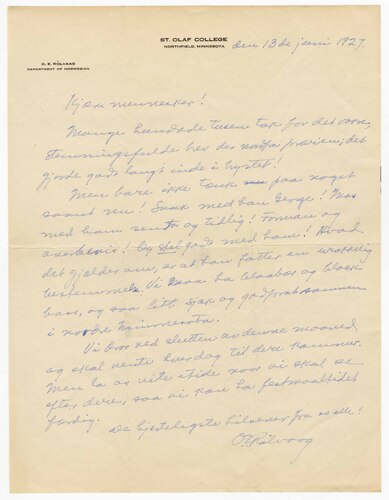 ST. OLAF COLLEGE
NORTHFIELD, MINNESOTA
den 13de juni 1927.
O. E. ROLVAAG
DEPARTMENT OF NORWEGIAN
Kjære mennesker!
Mange hundrede tusen tak for det vakre,
stemningsfulde brev der nordfra prærien; det
gjorde godt langt inde i brystet!
Men bare ikke tænk paa noget
saant nu! Snak med han George! Mas
med ham sent og tidlig! Forman og
overbevis! Og vær gode med ham! Hvad
det gjelder om, er at han fatter en virkelig
bestemmelse. Vi maa ha blaabær og black
bass, og saa litt sjak og godprat sammen
i nordre Minnesota.
Vi drar ved slutten av denne maaned
og skal vente hverdag til dere kommer.
Men la os vite itide naar vi skal se
efter dere, saa vi kan ha festmaaltidet
færdig.
De hjerteligste hilsener fra os alle!
OERölvaag